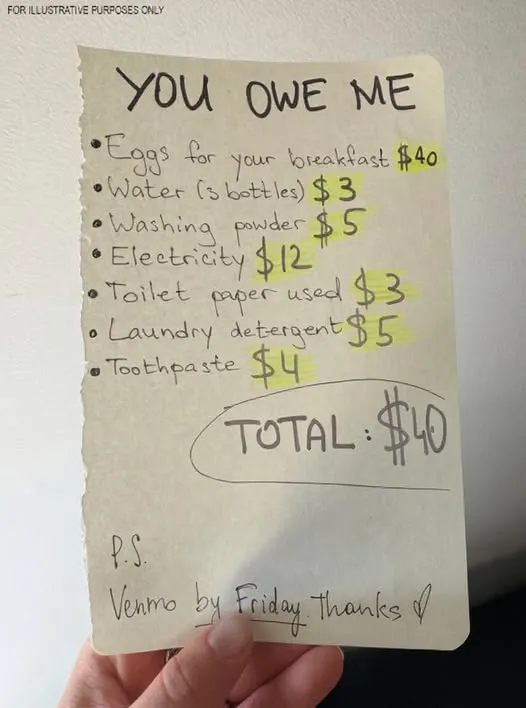 FOR ILLUSTRATIVE PURPOSES ONLY
YOU OWE ME
• Eggs for your breakfast $40
• Water (3 bottles) $3
• Washing powder $5
• Electricity $12
• Toilet paper used $3
• Laundry detergent $5
• Toothpaste $4
TOTAL: $40
P.S.
Venmo by Friday. Thanks ♡